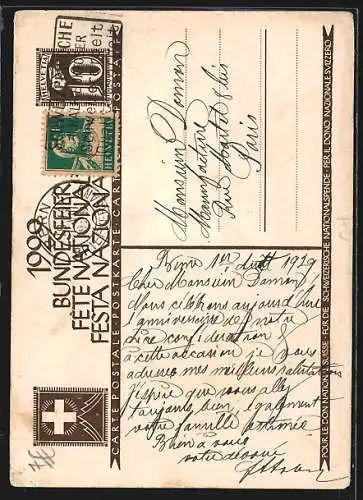 HELVETIA
10
HELVETIA
1929
BUNDESFEIER
FÊTE NATIONALE
FESTA NAZIONALE
CARTE POSTALE · POSTKARTE · CARTE POSTALE · POSTKARTE · CARTE POSTALE
Monsieur Damon
Manufacture
Rue
Paris
Berne 1er 1929
Cher Monsieur Damon,
Nous célébrons aujourd'hui
l'anniversaire de notre
confédération &
à cette occasion je vous
adresse mes meilleures salutations
J'espère que vous allez
toujours bien, également
votre famille estimée
Bien à vous
votre dévoué
POUR LE DON NATIONAL SUISSE · FÜR DIE SCHWEIZERISCHE NATIONALSPENDE · PER IL DONO NAZIONALE SVIZZERO